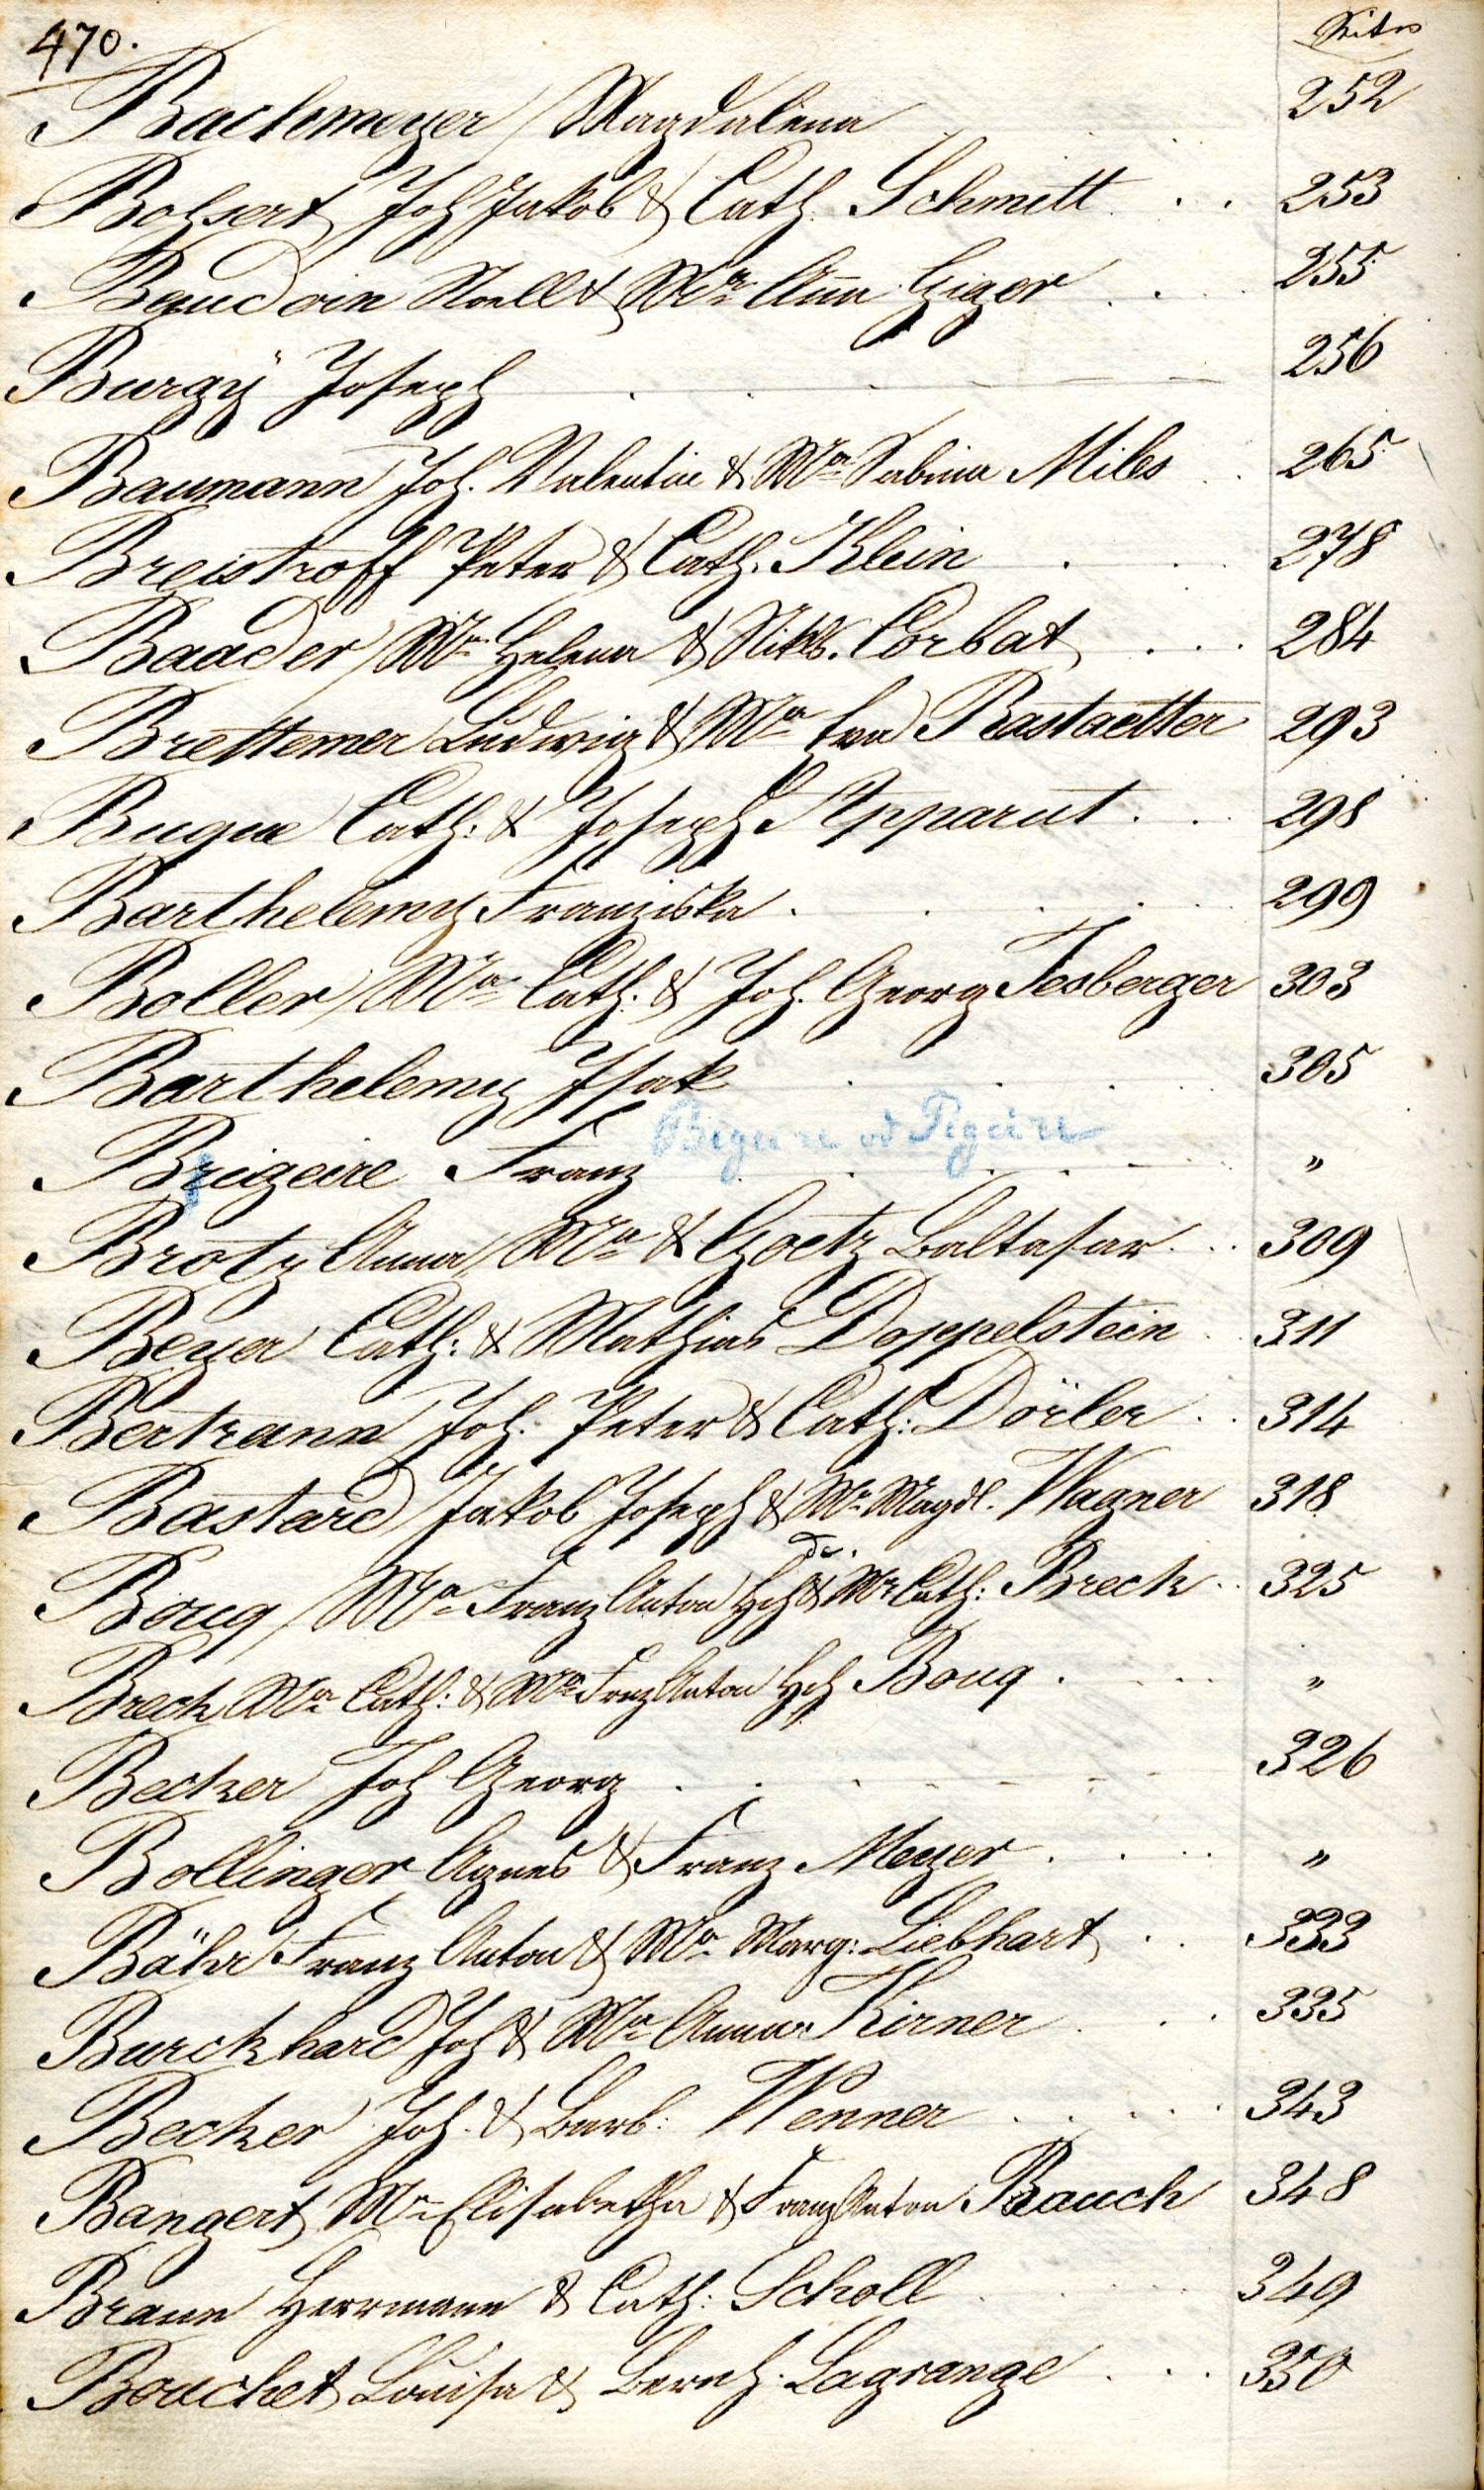 470.
Seite
Bachmeyer Magdalena 252
Bohsert Joh Jakob & Cath. Schmitt . . . 253
Baudoin Noell & Mᵃ Anna Giger . . . 255
Burgÿ Joseph . . . 256
Baumann Joh. Valentin & Mᵃ Sabina Miles . . 265
Breistroff Peter & Cath. Klein . . . 278
Baader Mᵃ Helena & Nikls. Corbat . . . 284
Brettemer Ludwig & Mᵃ Eva Rastaetter 293
Bugue Cath. & Joseph Apparut . . . 298
Barthelemy Franziska . . . . 299
Boller Mᵃ Cath. & Joh. Georg Fesberger 303
Barthelemy Isak . . . . 305
Bigeire od Pigeire
Brigeire Franz . . . . "
Brotz Anna Mᵃ & Goetz Baltasar . . . 309
Beyer Cath: & Mathias Doppelstein . . 311
Bertrann Joh. Peter & Cath: Dörler . . 314
Bastard Jakob Joseph & Mᵃ Magdl. Wagner 318
de.
Bouq Mᵃ Franz Anton Hch & Mᵃ Cath: Breck . . 325
Breck Mᵃ Cath: & Mᵃ Frnz Anton Hch Bouq . . . . "
Becker Joh Georg . . . . 326
Bollinger Agnes & Franz Meyer . . . . "
Bähr Franz Anton & Mᵃ Marg: Liebhart . . 333
Burckhard Joh & Mᵃ Anna Kirner . . . 335
Becker Joh. & Barb: Wenner . . . . 343
Bangert Mᵃ Elisabetha & Franz Anton Bauch 348
Braun Herrmann & Cath: Scholl . . . . 349
Bouchet Louisa & Bernh. Lagrange . . . 350